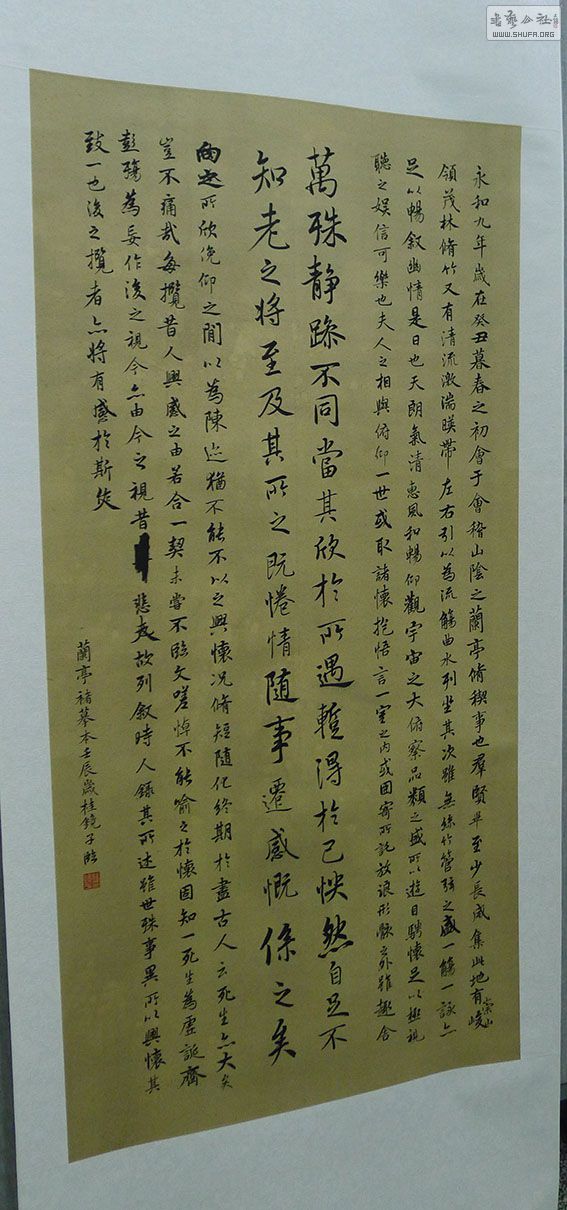 永和九年歲在癸丑暮春之初會于會稽山陰之蘭亭脩稧事也羣賢畢至少長咸集此地有崇山峻
領茂林脩竹又有清流激湍暎帶左右引以為流觴曲水列坐其次雖無絲竹管弦之盛一觴一詠亦
足以暢敘幽情是日也天朗氣清惠風和暢仰觀宇宙之大俯察品類之盛所以遊目騁懷足以極視
聽之娛信可樂也夫人之相與俯仰一世或取諸懷抱悟言一室之內或因寄所託放浪形骸之外雖趣舍
萬殊靜躁不同當其欣於所遇暫得於己怏然自足不
知老之將至及其所之既惓情隨事遷感慨係之矣
向之所欣俛仰之間以為陳迹猶不能不以之興懷況脩短隨化終期於盡古人云死生亦大矣
豈不痛哉每攬昔人興感之由若合一契未嘗不臨文嗟悼不能喻之於懷固知一死生為虛誕齊
彭殤為妄作後之視今亦由今之視昔悲夫故列敘時人錄其所述雖世殊事異所以興懷其
致一也後之攬者亦將有感於斯文
蘭亭褚摹本壬辰歲桂鏡子臨
書藝公社
WWW.SHUFA.ORG